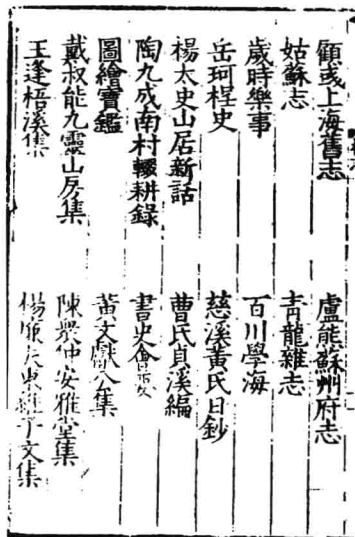 顧彧上海舊志 盧熊蘇州府志
姑蘇志 青龍雜志
歲時樂事 百川學海
岳珂桯史 慈溪黃氏日鈔
楊太史山居新話 曹氏貞溪編
陶九成南村輟耕錄 書史會要
圖繪寶鑑 黃文獻公集
戴叔能九靈山房集 陳眾仲安雅堂集
王逢梧溪集 楊廉夫東維子文集